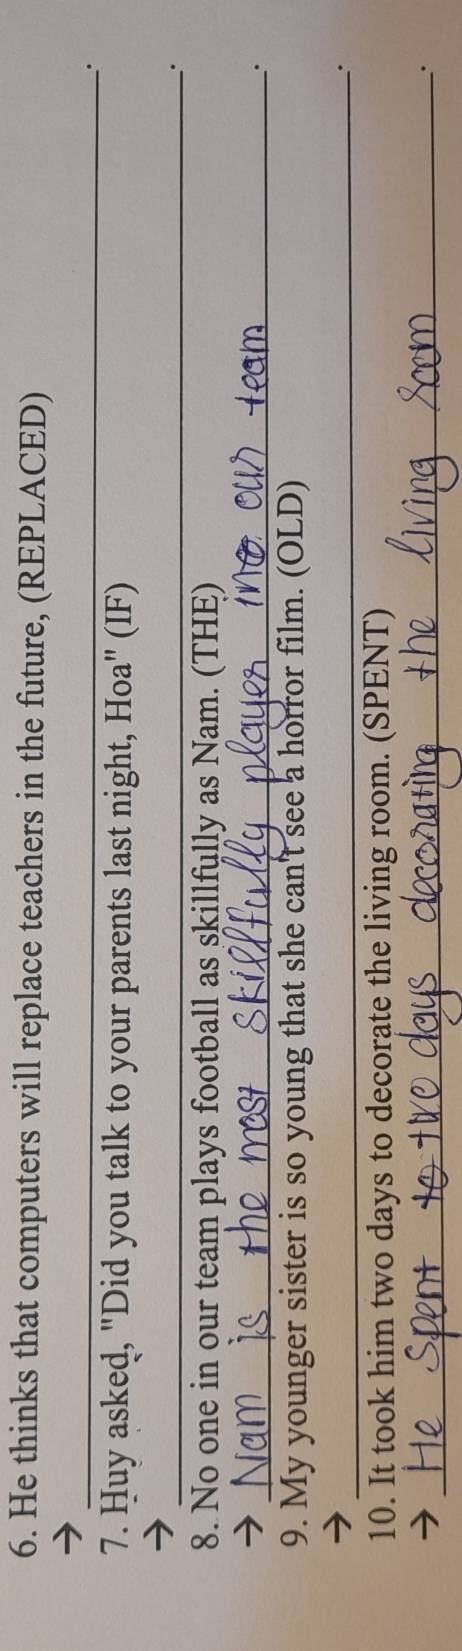 6. He thinks that computers will replace teachers in the future, (REPLACED)
→ .
7. Huy asked, "Did you talk to your parents last night, Hoa" (IF)
→ .
8. No one in our team plays football as skillfully as Nam. (THE)
→ Nam is the most skillfully player in our team.
9. My younger sister is so young that she can't see a horror film. (OLD)
→ .
10. It took him two days to decorate the living room. (SPENT)
→ He spent two days decorating the living room.